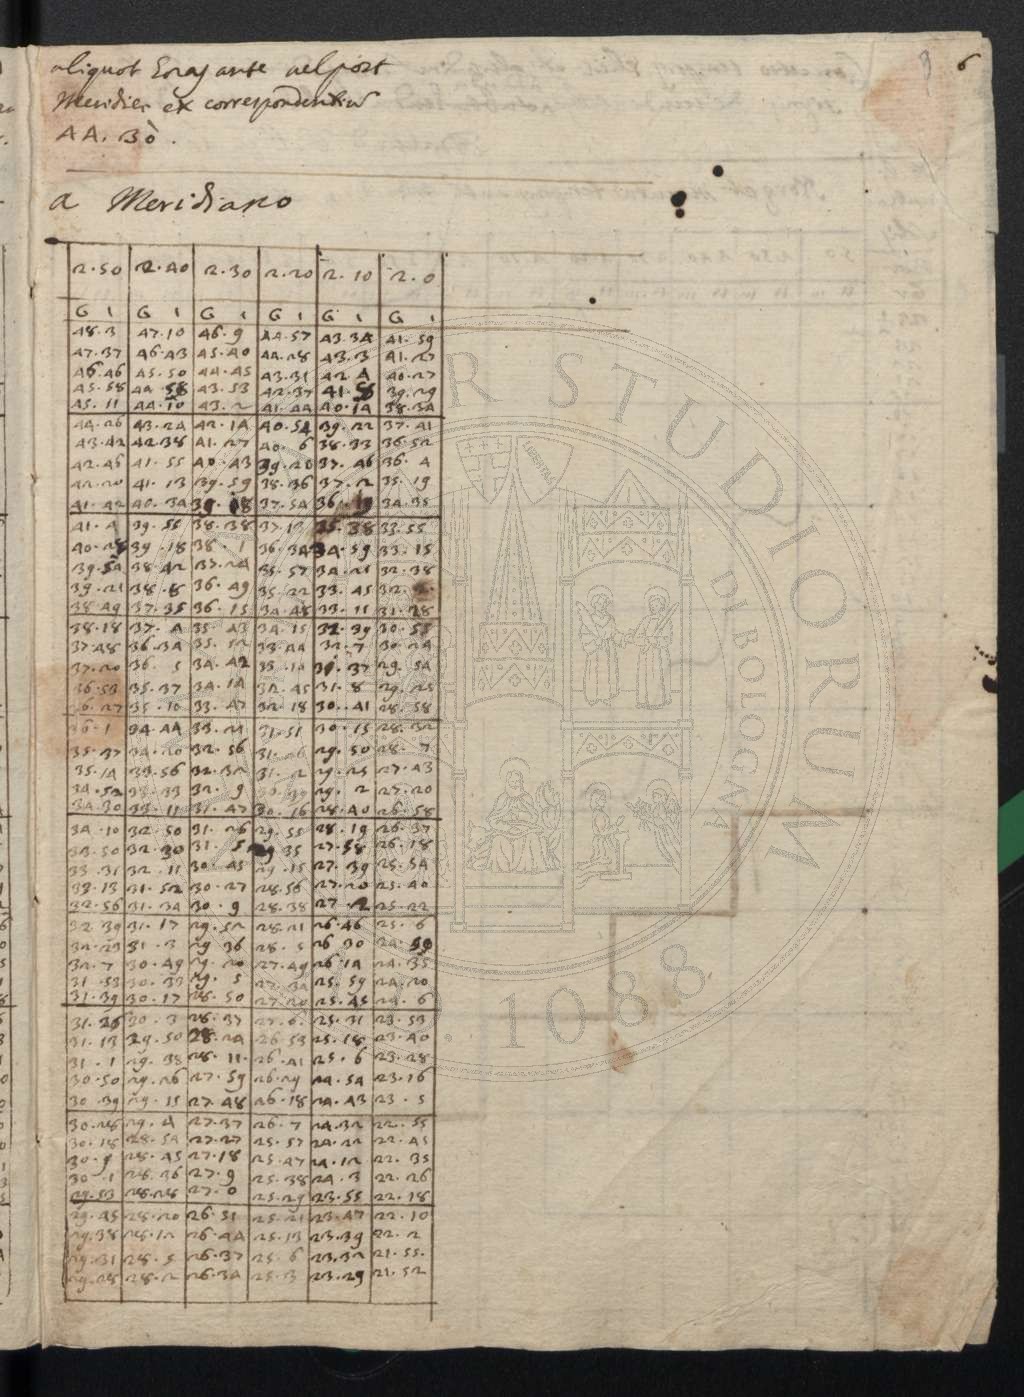 6
aliquot horas ante vel post
Meridiem ex correspondentia
44. 30.
a Meridiano
2.50 2.40 2.30 2.20 2.10 2.0
G I G I G I G I G I G I
48.3 47.10 46.9 44.57 43.34 41.59
47.37 46.43 45.40 44.28 43.3 41.27
46.46 45.50 44.45 43.31 42.4 40.27
45.58 44.58 43.53 42.37 39.29
45.11 44.10 43.2 41.44 40.14 38.34
44.26 43.24 42.14 40.54 39.22 37.41
43.42 42.38 41.27 40.6 38.33 36.52
42.45 41.55 40.43 39.20 37.46 36.4
42.20 41.13 39.59 38.36 37.2 35.19
41.42 40.34 39.18 37.54 36.19 34.35
41.4 39.55 38.38 37.13 35.38 33.55
40.28 39.18 38.1 36.34 34.59 33.15
39.54 38.42 37.24 35.57 34.21 32.38
39.21 38.8 36.49 35.22 33.45
38.49 37.35 36.15 34.48 33.11 31.28
38.18 37.4 35.43 34.15 32.39 30.55
37.48 36.34 35.12 33.44 32.7 30.24
37.20 36.5 34.42 33.14 31.37 29.54
36.53 35.37 34.14 32.45 31.8 29.25
36.27 35.10 33.47 32.18 30.41 28.58
36.1 34.44 33.21 31.51 30.15 28.32
35.37 34.20 32.56 31.26 29.50 28.7
35.14 33.56 32.32 31.2 29.25 27.43
34.52 33.33 32.9 30.39 29.2 27.20
34.30 33.11 31.47 30.16 28.40 26.58
34.10 32.50 31.26 29.55 28.19 26.37
33.50 32.30 31.5 29.35 27.58 26.18
33.31 32.11 30.45 29.15 27.39 25.54
33.13 31.52 30.27 28.56 27.20 25.40
32.56 31.34 30.9 28.38 27.2 25.22
32.39 31.17 29.52 28.21 26.46 25.6
32.23 31.3 29.36 28.5 26.30 24.50
32.7 30.49 29.20 27.49 26.14 24.35
31.53 30.33 29.5 27.34 25.59 24.20
31.39 30.17 28.50 27.20 25.45 24.6
31.26 30.3 28.37 27.6 25.31 23.53
31.13 29.50 28.24 26.53 25.18 23.40
31.1 29.38 28.11 26.41 25.6 23.28
30.50 29.26 27.59 26.29 24.54 23.16
30.39 29.15 27.48 26.18 24.43 23.5
30.28 29.4 27.37 26.7 24.32 22.55
30.18 28.54 27.27 25.57 24.22 22.45
30.9 28.45 27.18 25.47 24.12 22.35
30.1 28.36 27.9 25.38 24.3 22.26
29.53 28.28 27.0 25.29 23.55 22.18
29.45 28.20 26.51 25.21 23.47 22.10
29.38 28.12 26.44 25.13 23.39 22.2
29.31 28.5 26.37 25.6 23.32 21.55
29.28 28.2 26.34 25.3 23.29 21.52
R STUDIORUM
DI BOLOGNA
1088